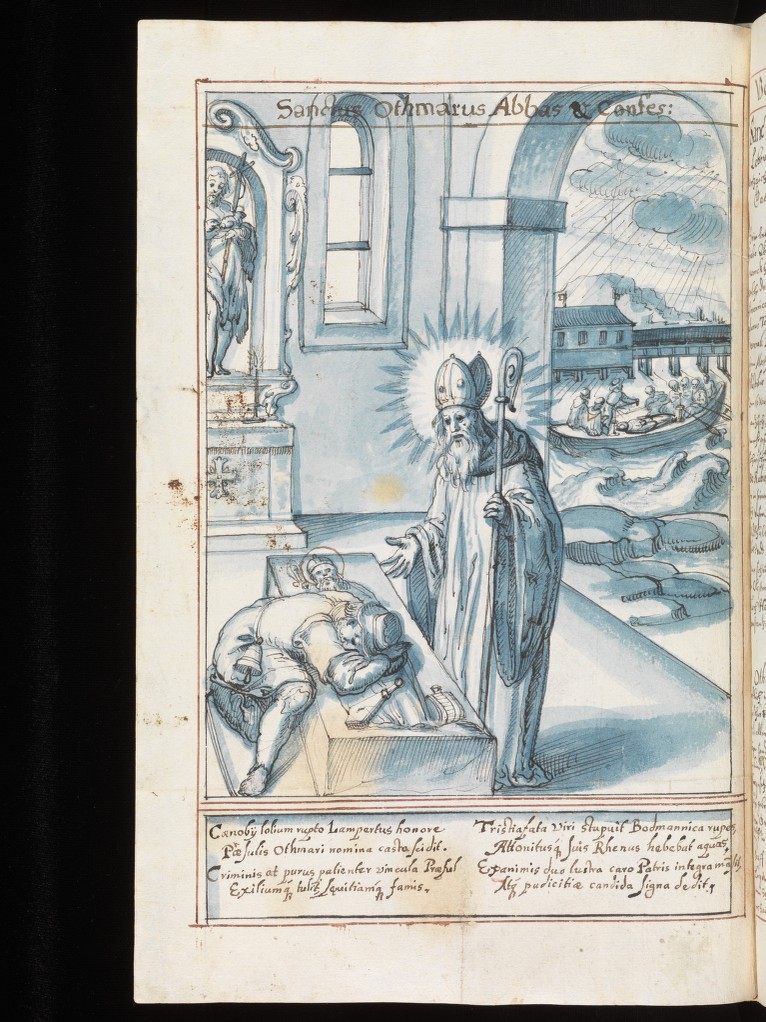 Sanctus Othmarus Abbas & Confes:
Cœnobÿ lolium rupto Lampertus honore
Præsulis Othmari nomina casta scidit.
Criminis at purus patienter vincula Præsul
Exiliumq tulit, sævitiamq famis,
Tristia fata Viri stupuit Bodmannica rupes,
Attonitusq suis Rhenus hebebat aquis,
Exanimis duo lustra caro Patris integra
Atq pudicitiæ candida signa dedit,